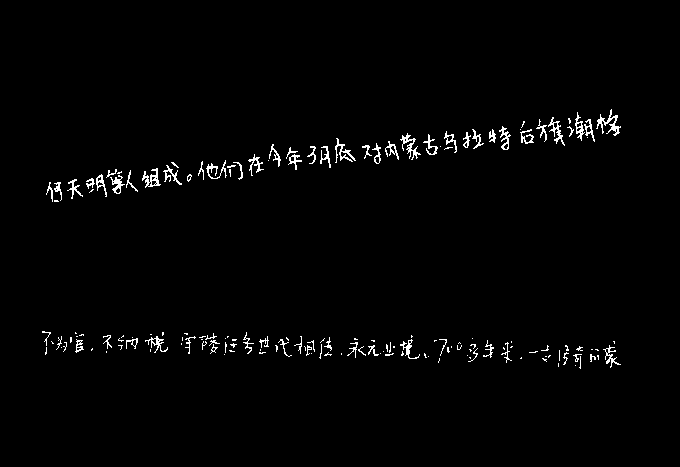 何天明等人组成。他们在今年3月底对内蒙古乌拉特后旗潮格
不为官，不纳税，守陵任务世代相传，永无止境。700多年来，一支传奇的蒙